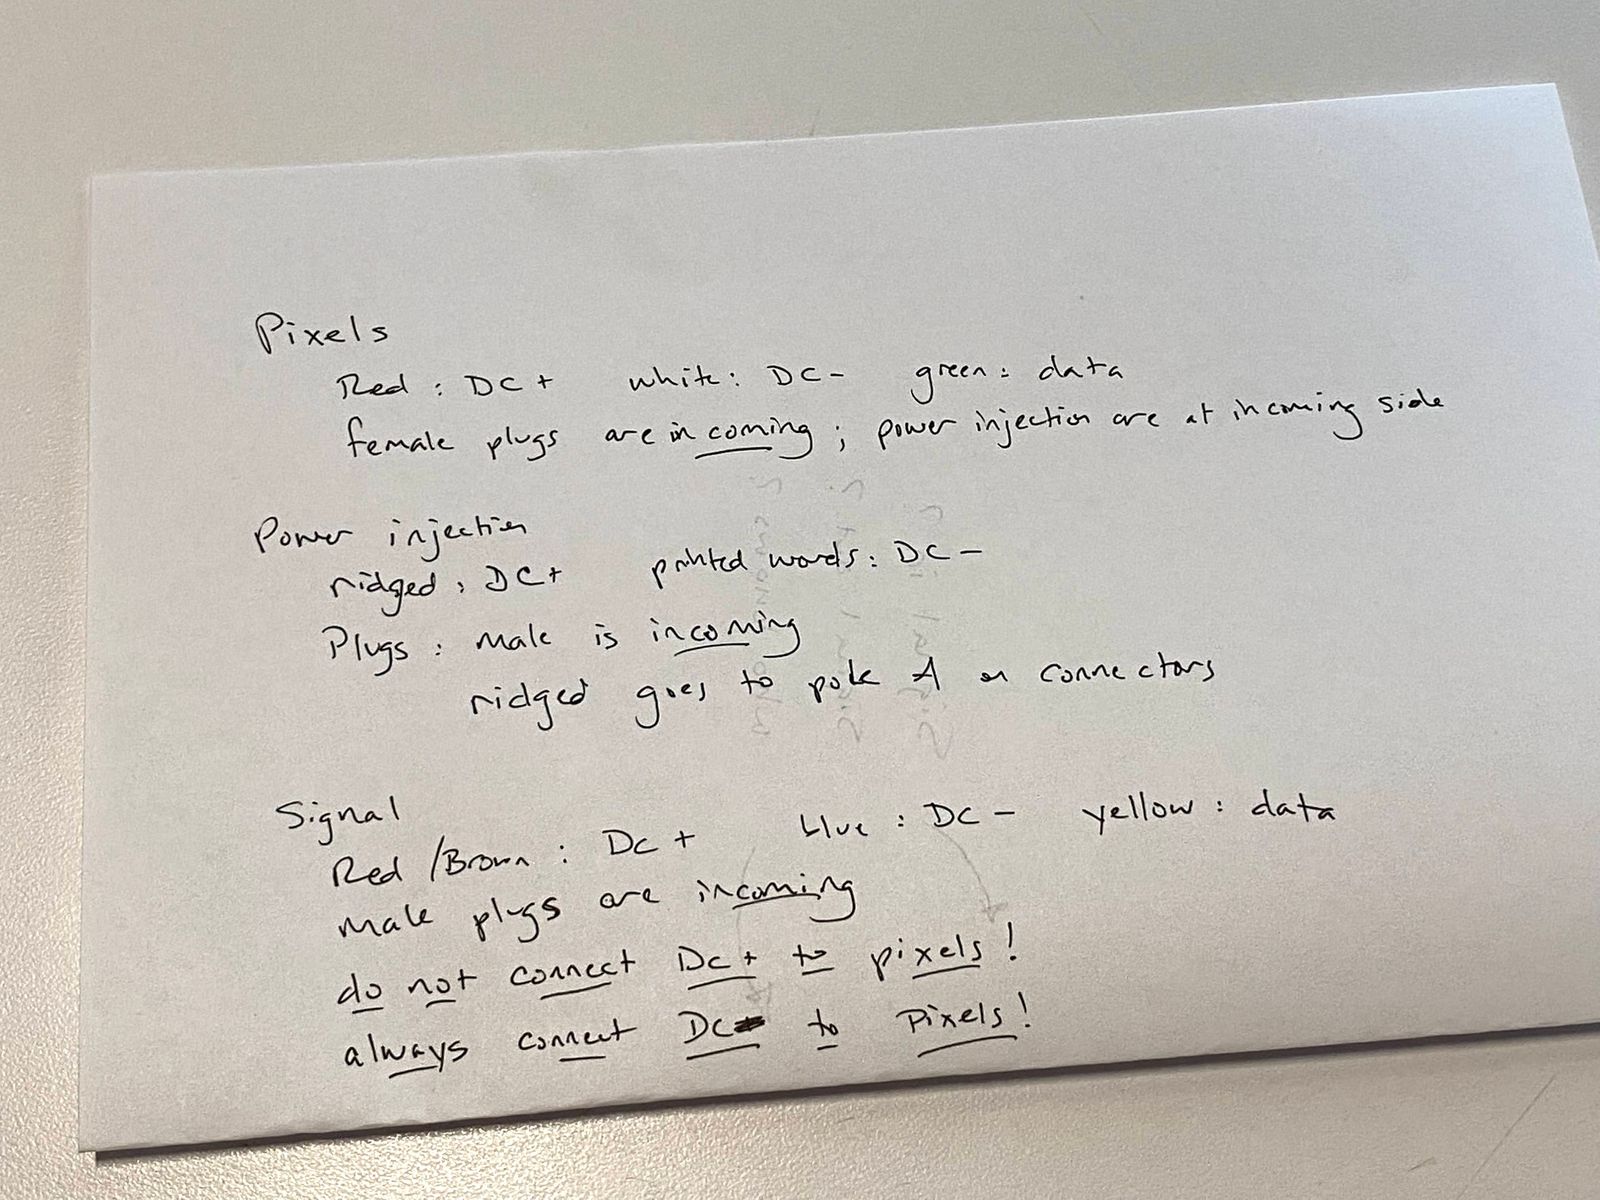 Pixels
Red : DC+ white: DC- green: data
female plugs are incoming ; power injection are at incoming side
Power injection
ridged : DC+ printed words: DC-
Plugs : male is incoming
ridged goes to pole A on connectors
Signal
Red/Brown : DC+ blue : DC- yellow : data
male plugs are incoming
do not connect DC+ to pixels!
always connect DC- to Pixels!